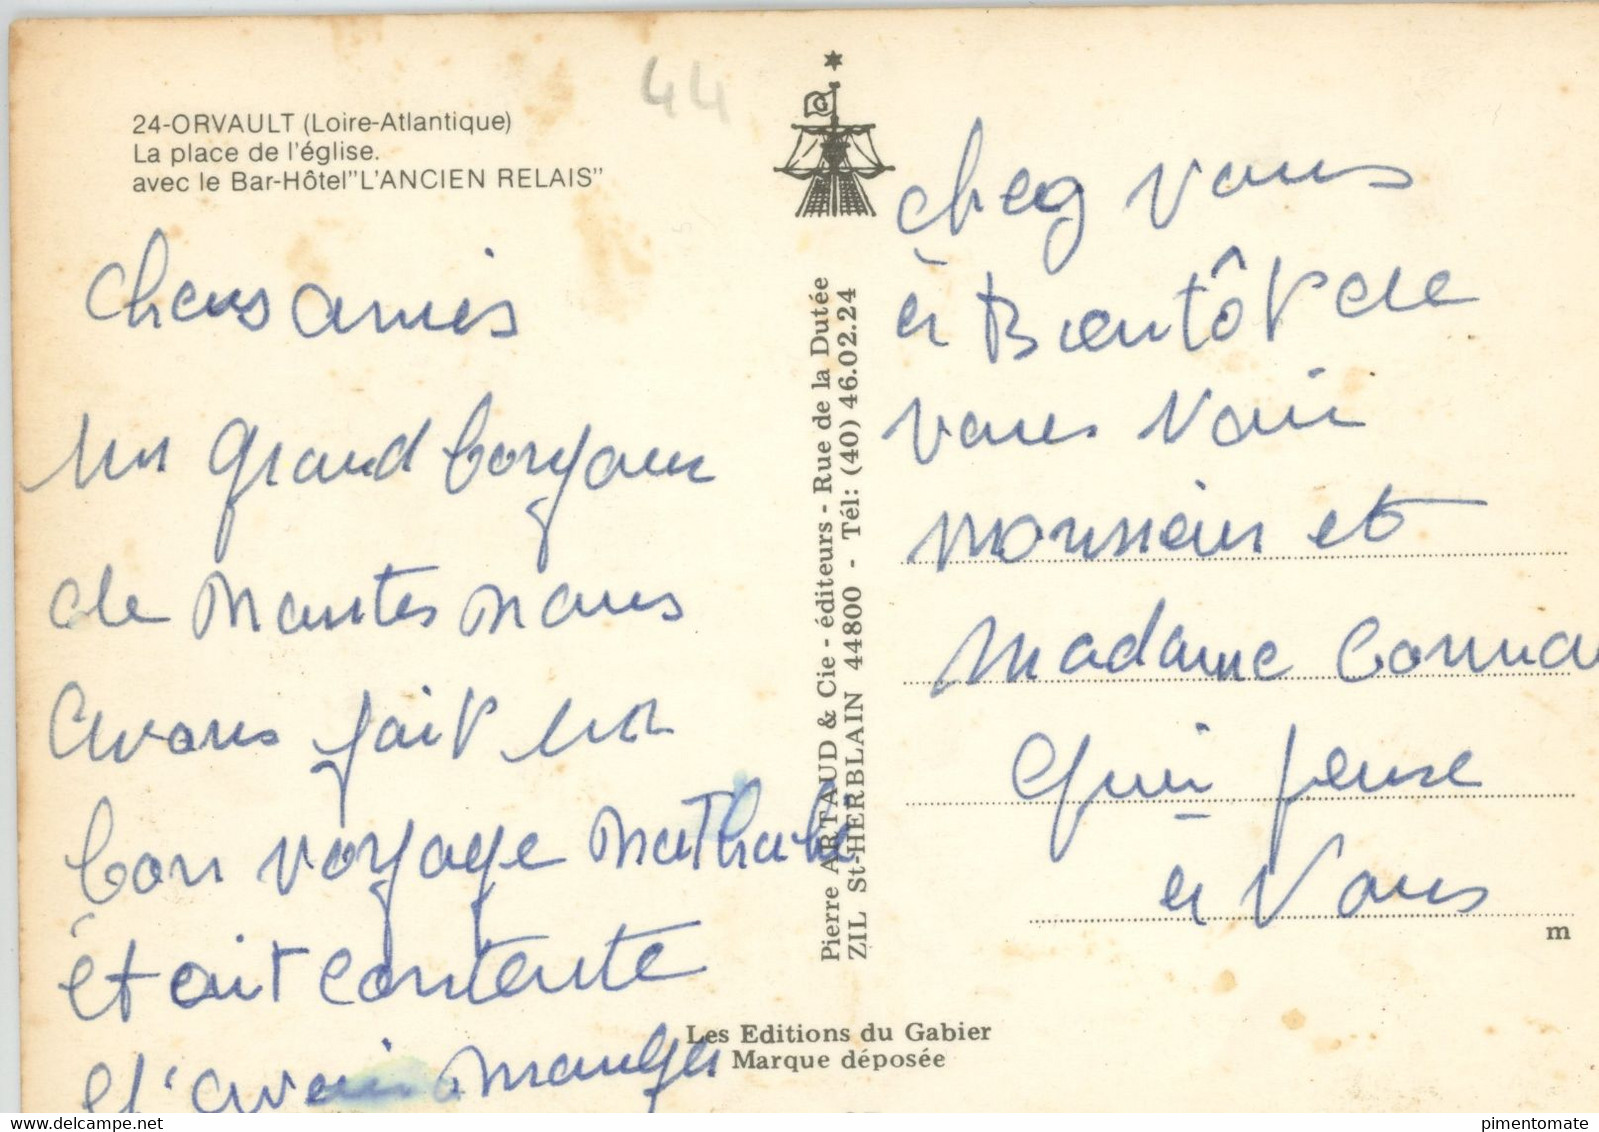 44
24-ORVAULT (Loire-Atlantique)
La place de l'église.
avec le Bar-Hôtel"L'ANCIEN RELAIS"
Chers amis
un grand bonjour
de Nantes nous
avons fait un
bon voyage Nathalie
était contente
d'avoir manger
Pierre ARTAUD & Cie - éditeurs - Rue de la Dutée
ZIL St-HERBLAIN 44800 - Tél: (40) 46.02.24
chez vous
à Bientôt de
vous voir
monsieur et
Madame
qui pense
à vous
m
Les Editions du Gabier
Marque déposée
pimentomate